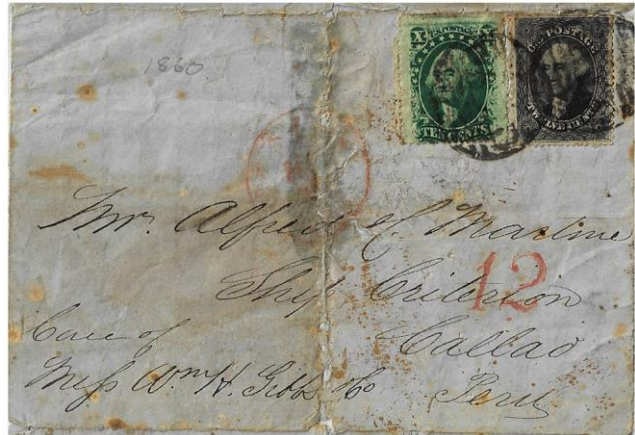 1860
X U.S. POSTAGE X
TEN CENTS
U.S. POSTAGE
TWELVE CENTS
12
Mr. Alfred C. Martine
Ship Criterion
Callao
Peru
Care of
Mess Wm H. Gibbs & Co